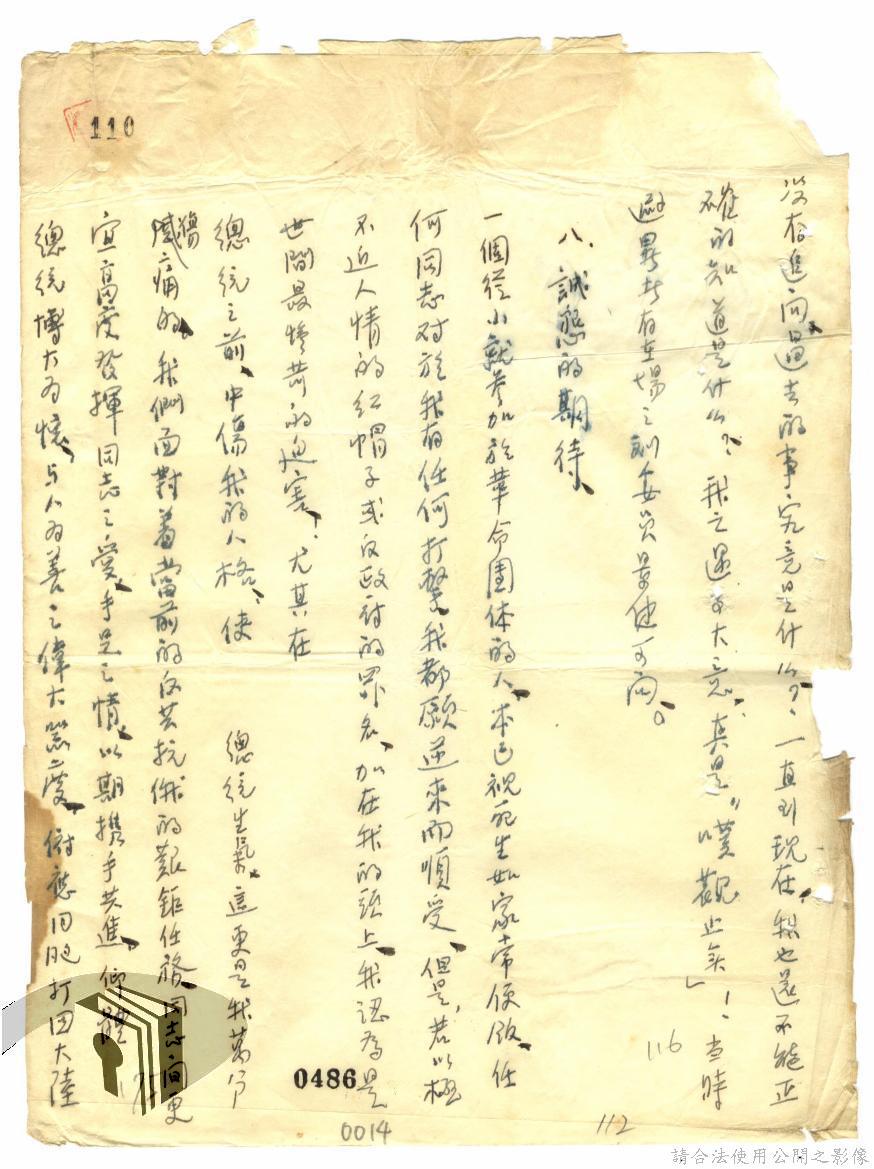 110
沒有追问、過去的事究竟是什么？、一直到現在、我也还不能正
確的知道是什么？、我之過于大意、真是〝嘆觀止矣〞！、当時
與此有在場之訓委員景健可问。
八、誠懇的期待、
一個從小就參加於革命團体的人、本已視死生如家常便飯、任
何同志对於我有任何打擊、我都願逆來而順受、但是、若以極
不近人情的红帽子或反政府的罪名、加在我的頭上、我認為是
世間最慘苛的迫害、尤其在
總統之前、中傷我的人格、使　　總統生氣、這更是我萬分
感傷痛的、我們面對着當前的反共抗俄的艱鉅任務、同志间更
宜高度發揮同志之愛、手足之情、以期攜手共進、仰體
總統博大为懷、与人为善之偉大器度、打回大陸
116
0486
0014
112
請合法使用公開之影像